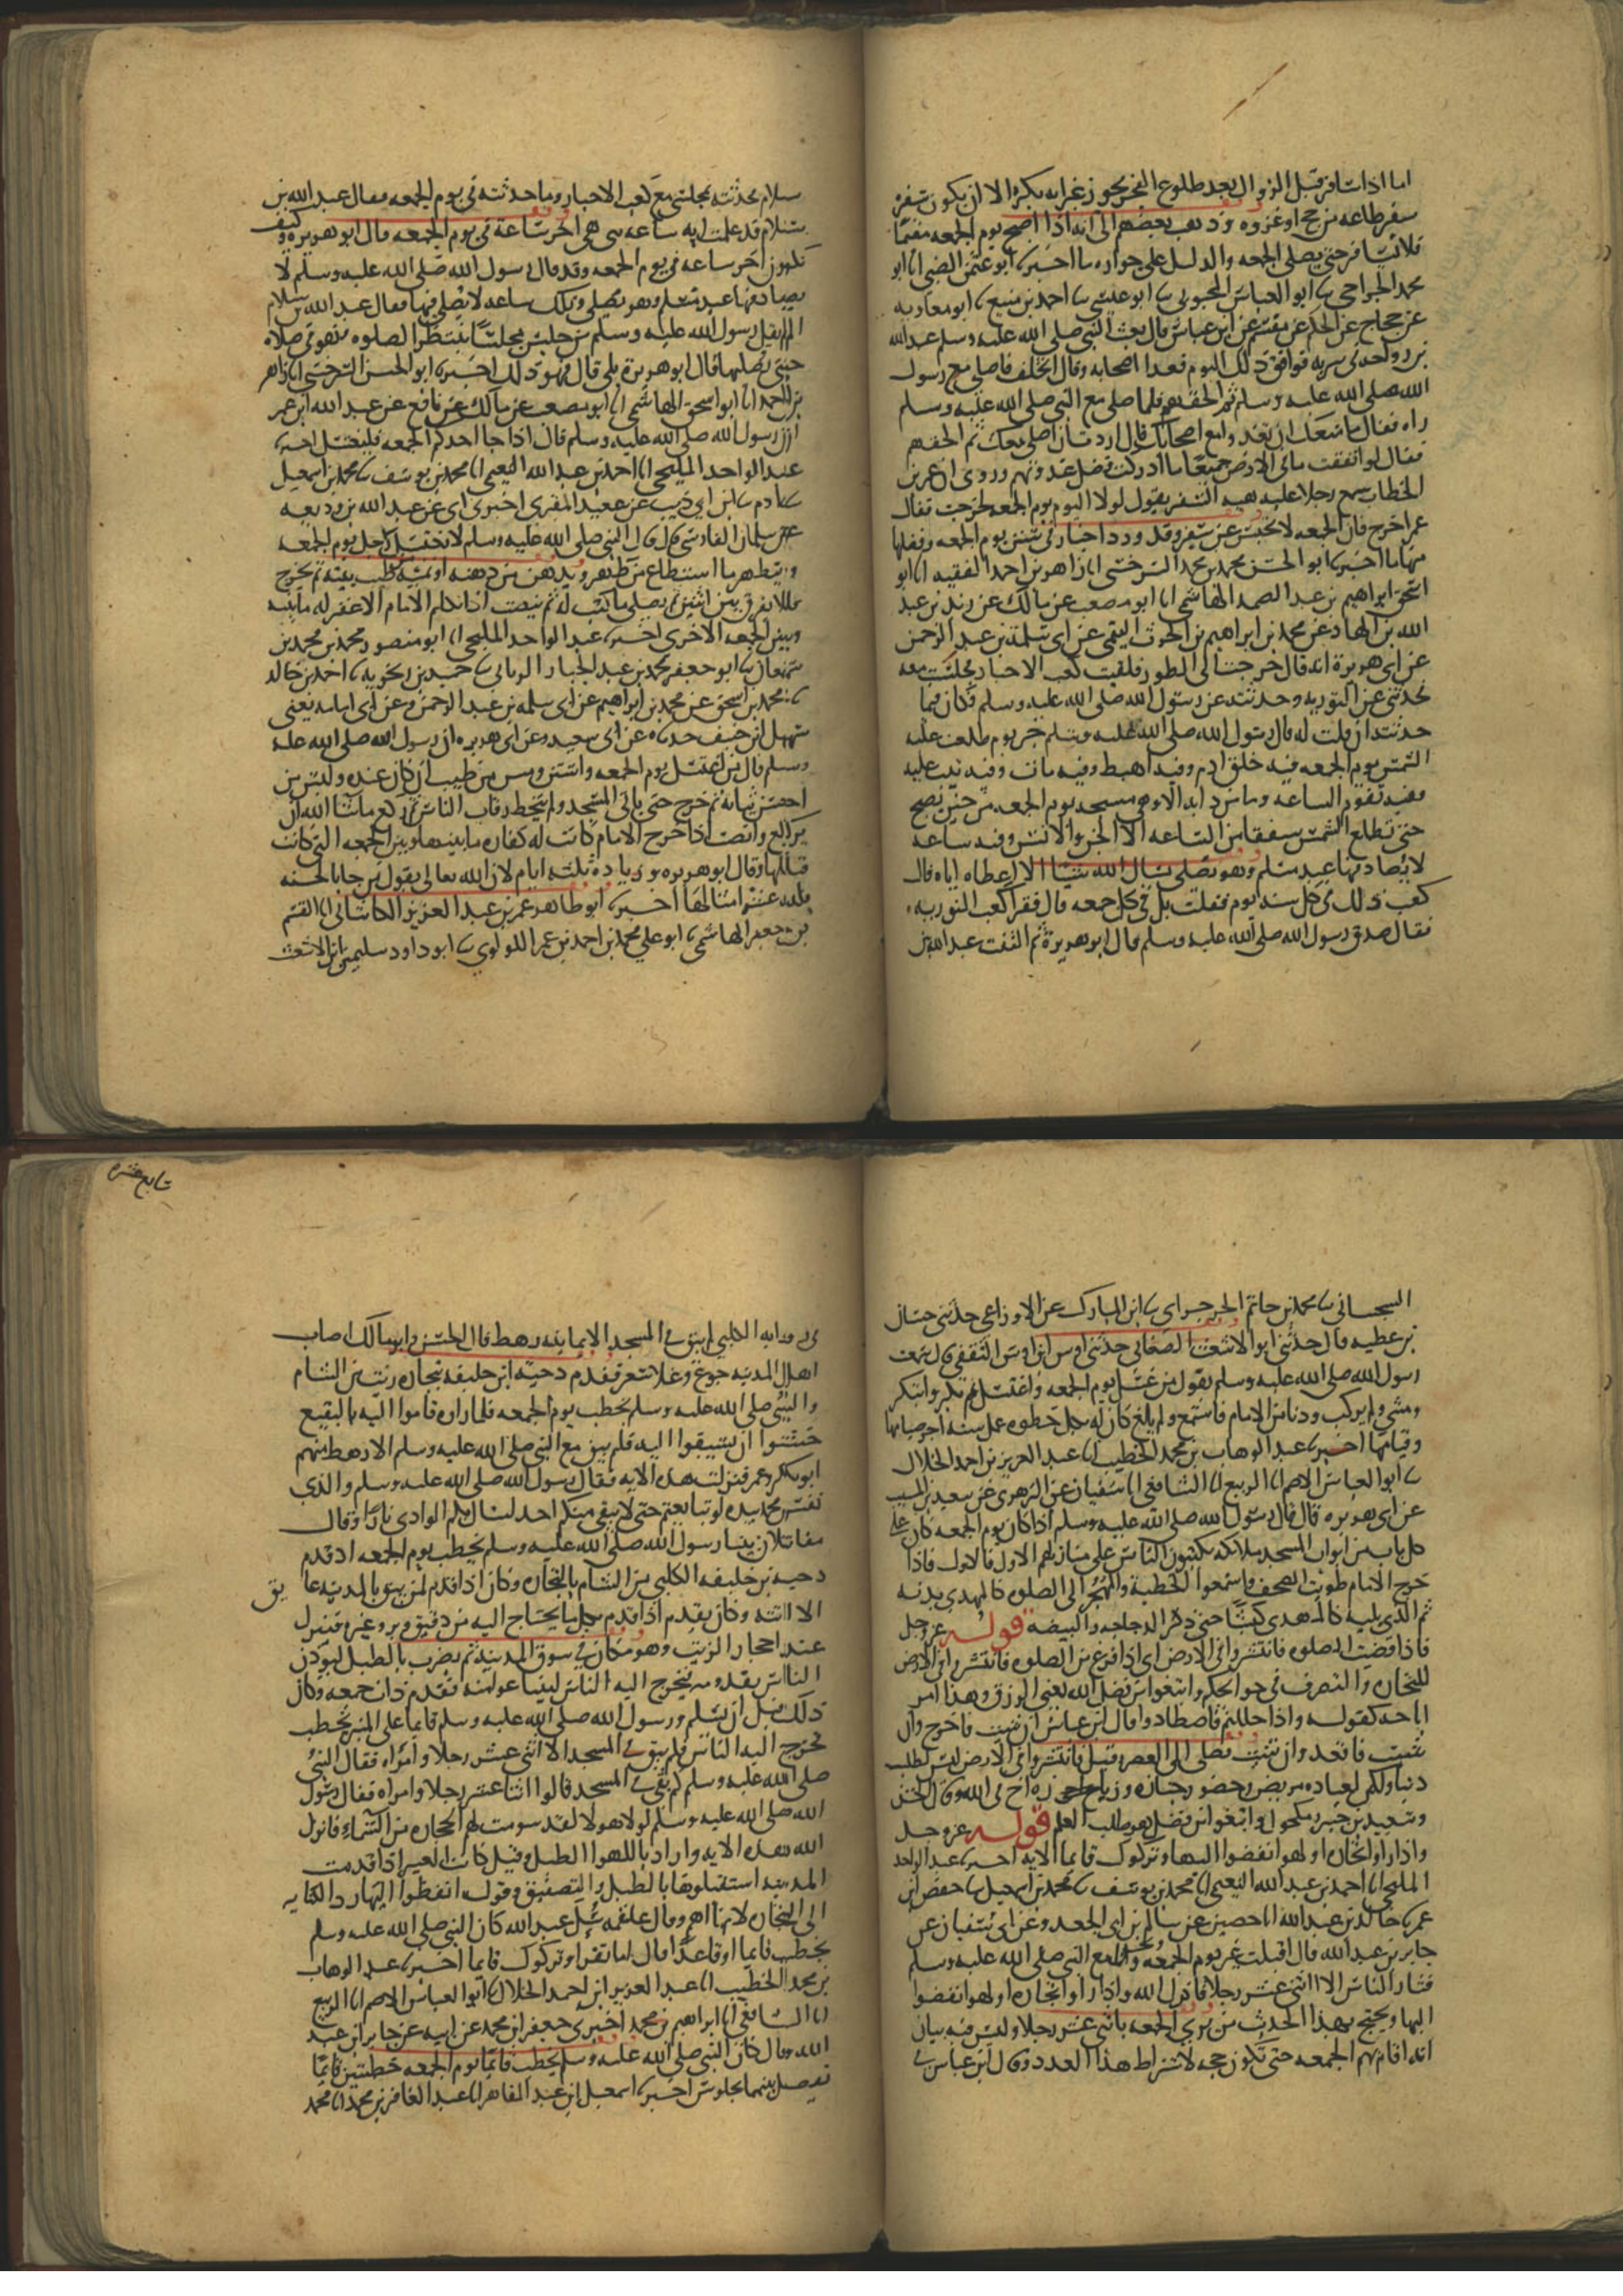 اما اذا سافر قبل الزوال بعد طلوع الفجر يجوز غير انه يكره الا ان يكون سفره
سفر طاعه من حج او غزوه وذهب بعضهم الى انه اذا اصبح يوم الجمعه مقيمًا
فلا يسافر حتى يصلى الجمعه والدليل على جوازه ما اخبرنا ابو عثمن الضبي انا ابو
محمد الجراحي نا ابو العباس المحبوبي نا ابو عيسى نا احمد بن منيع نا ابو معاويه
عن حجاج عن الحكم عن مقسم عن ابن عباس قال بعث النبي صلى الله عليه وسلم عبد الله
بن رواحه في سريه فوافق ذلك اليوم فغدا اصحابه وقال اتخلف فاصلي مع رسول
الله صلى الله عليه وسلم ثم الحقهم فلما صلى مع النبي صلى الله عليه وسلم
راه فقال ما منعك ان تغدوا مع اصحابك قال اردت ان اصلي معك ثم الحقهم
فقال لو انفقت ما في الارض جميعًا ما ادركت فضل غدوتهم وروى ان عمر بن
الخطاب سمع رجلا عليه هيه السفر يقول لولا اليوم يوم الجمعه لخرجت فقال
عمر اخرج فان الجمعه لا تحبس عن سفر وقد ورد اخبار في سنن يوم الجمعه وفضلها
منها ما اخبرنا ابو الحسن محمد بن محمد السرخسي انا زاهر بن احمد الفقيه انا ابو
اسحق ابراهيم بن عبد الصمد الهاشمي انا ابو مصعب عن مالك عن يزيد بن عبد
الله بن الهاد عن محمد بن ابراهيم بن الحرث التيمي عن ابي سلمة بن عبد الرحمن
عن ابي هريرة انه قال خرجت الى الطور فلقيت كعب الاحبار فجلست معه
فحدثني عن التوريه وحدثته عن رسول الله صلى الله عليه وسلم فكان فيما
حدثته ان قلت له قال رسول الله صلى الله عليه وسلم خير يوم طلعت عليه
الشمس يوم الجمعه فيه خلق ادم وفيه اهبط وفيه مات وفيه تيب عليه
وفيه تقوم الساعه وما من دابه الا وهي مسيخه يوم الجمعه من حين تصبح
حتى تطلع الشمس شفقا من الساعه الا الجن والانس وفيه ساعه
لا يصادفها عبد مسلم وهو يصلي يسال الله شيئا الا اعطاه اياه قال
كعب ذلك في كل سنه يوم فقلت بل في كل جمعه قال فقرا كعب التوريه
فقال صدق رسول الله صلى الله عليه وسلم قال ابو هريرة ثم لقيت عبد الله بن
سلام فحدثته بمجلسي مع كعب الاحبار وما حدثته في يوم الجمعه فقال عبد الله بن
سلام قد علمت ايه ساعه هي هي اخر ساعة في يوم الجمعه قال ابو هريره وكيف
تكون اخر ساعه في يوم الجمعه وقد قال رسول الله صلى الله عليه وسلم لا
يصادفها عبد مسلم وهو يصلي وتلك ساعه لا يصلي فيها فقال عبد الله بن سلام
الم يقل رسول الله عليه وسلم من جلس مجلسًا ينتظر الصلوه فهو في صلاه
حتى يصليها قال ابو هريرة بلى قال فهو ذلك اخبرنا ابو الحسن السرخسي انا زاهر
بن احمد انا ابو اسحق الهاشمي انا ابو مصعب عن مالك عن نافع عن عبد الله ابن عمر
ان رسول الله صلى الله عليه وسلم قال اذا جا احدكم الجمعه فليغتسل اخبرنا
عبد الواحد المليحي انا احمد بن عبد الله النعيمي انا محمد بن يوسف نا محمد بن اسمعيل
نا ادم نا ابن ابي ذيب عن سعيد المقبري اخبرني ابي عن عبد الله بن وديعه
عن سلمان الفارسي قال قال النبي صلى الله عليه وسلم لا يغتسل رجل يوم الجمعه
ويتطهر ما استطاع من طهر ويدهن من دهنه او يمس من طيب بيته ثم يخرج
فلا يفرق بين اثنين ثم يصلي ما كتب له ثم ينصت اذا تكلم الامام الا غفر له ما بينه
وبين الجمعه الاخرى اخبرنا عبد الواحد المليحي انا ابو منصور محمد بن محمد بن
سمعان نا ابو جعفر محمد بن عبد الجبار الرياني نا حميد بن زنجويه نا احمد بن خالد
نا محمد بن اسحق عن محمد بن ابراهيم عن ابي سلمه بن عبد الرحمن وعن ابي امامه يعني
سهل ابن حنيف حدثاه عن ابي سعيد وعن ابي هريره ان رسول الله صلى الله عليه
وسلم قال من اغتسل يوم الجمعه واستن ومس من طيب ان كان عنده ولبس من
احسن ثيابه ثم خرج حتى ياتي المسجد ولم يتخط رقاب الناس ثم ركع ما شا الله ان
يركع وانصت اذا خرج الامام كانت له كفاره ما بينها وبين الجمعه التي كانت
قبلها وقال ابو هريره وزياده ثلثه ايام لان الله تعالى يقول من جا بالحسنه
فله عشر امثالها اخبرنا ابو طاهر عمر بن عبد العزيز القاشاني انا القسم
بن جعفر الهاشمي نا ابو علي محمد بن احمد بن عمر اللولوي نا ابو داود سليمن بن الاشعث
السجستاني نا محمد بن حاتم الجرجراي نا ابن المبارك عن الاوزاعي حدثني حسان
بن عطيه قال حدثني ابو الاشعث الصنعاني حدثني اوس ابن اوس الثقفي قال سمعت
رسول الله صلى الله عليه وسلم يقول من غسل يوم الجمعه واغتسل ثم بكر وابتكر
ومشى ولم يركب ودنا من الامام فاستمع ولم يلغ كان له بكل خطوه عمل سنه اجر صيامها
وقيامها اخبرنا عبد الوهاب بن محمد الخطيب انا عبد العزيز بن احمد الخلال
نا ابو العباس الاصم انا الربيع انا الشافعي انا سفيان عن الزهري عن سعيد بن المسيب
عن ابي هريره قال قال رسول الله صلى الله عليه وسلم اذا كان يوم الجمعه كان على
كل باب من ابواب المسجد ملائكه يكتبون الناس على منازلهم الاول فالاول فاذا
خرج الامام طويت الصحف واستمعوا الخطبة والمهجر الى الصلوه كالمهدي بدنه
ثم الذي يليه كالمهدي كبشًا حتى ذكر الدجاجه والبيضه قوله عز وجل
فاذا قضيت الصلوه فانتشروا في الارض اي اذا فرغ من الصلوه فانتشروا في الارض
للتجاره والتصرف في حوايجكم وابتغوا من فضل الله يعني الرزق وهذا امر
اباحه كقوله واذا حللتم فاصطادوا قال ابن عباس ان شيت فاخرج وان
شيت فاقعد وان شيت فصلي الى العصر وقيل فانتشروا في الارض ليس لطلب
دنيا ولكن لعياده مريض وحضور جنازه وزياره اخ في الله وقال الحسن
وسعيد بن جبير ومكحول وابتغوا من فضل الله هو طلب العلم قوله عز وجل
واذا راوا تجاره او لهوا انفضوا اليها وتركوك قايما الايه اخبرنا عبد الواحد
المليحي انا احمد بن عبد الله النعيمي انا محمد بن يوسف نا محمد بن اسمعيل نا حفص ابن
عمر نا خالد بن عبد الله انا حصين عن سالم بن ابي الجعد وعن ابي سفيان عن
جابر بن عبد الله قال اقبلت عير يوم الجمعه ونحن مع النبي صلى الله عليه وسلم
فثار الناس الا اثنى عشر رجلا فانزل الله واذا راوا تجاره او لهوا انفضوا
اليها ويحتج بهذا الحديث من يرى الجمعه باثني عشر رجلا وليس فيه بيان
انه اقام بهم الجمعه حتى تكون حجه لاشتراط هذا العدد وقال ابن عباس في
سابع عشره
في روايه الكلبي لم يبق في المسجد الا ثمانيه رهط قال الحسن وابو مالك اصاب
اهل المدينه جوع وغلا سعر فقدم دحية ابن خليفه بتجاره زيت من الشام
والنبي صلى الله عليه وسلم يخطب يوم الجمعه فلما راوه قاموا اليه بالبقيع
خشوا ان يسبقوا اليه فلم يبق مع النبي صلى الله عليه وسلم الا رهط منهم
ابو بكر وعمر فنزلت هذه الايه فقال رسول الله صلى الله عليه وسلم والذي
نفس محمد بيده لو تتابعتم حتى لا يبقى منكم احد لسال بكم الوادي نارًا وقال
مقاتلان بينا رسول الله صلى الله عليه وسلم يخطب يوم الجمعه اذ قدم
دحيه بن خليفه الكلبي من الشام بالتجاره وكان اذا قدم لم يبق بالمدينه عا
تق
الا اتته وكان يقدم اذا قدم بكل ما يحتاج اليه من دقيق وبر وغيره فنزل
عند احجار الزيت وهو مكان في سوق المدينه ثم يضرب بالطبل ليوذن
الناس بقدومه فيخرج اليه الناس ليبتاعوا منه فقدم ذات جمعه وكان
ذلك قبل ان يسلم ورسول الله صلى الله عليه وسلم قايما على المنبر يخطب
فخرج اليه الناس فلم يبق في المسجد الا اثنى عشر رجلا وامراه فقال النبي
صلى الله عليه وسلم كم بقي في المسجد قالوا اثنا عشر رجلا وامراه فقال رسول
الله صلى الله عليه وسلم لولا هولا لقد سومت لهم الحجاره من السماء فانزل
الله هذه الايه واراد باللهو الطبل وقيل كانت العير اذا قدمت
المدينه استقبلوها بالطبل والتصفيق وقوله انفضوا اليها رد الكنايه
الى التجاره لانها اهم وقال علقمه سُئل عبد الله كان النبي صلى الله عليه وسلم
يخطب قايما او قاعدًا قال اما تقرا وتركوك قايما اخبرنا عبد الوهاب
بن محمد الخطيب انا عبد العزيز ابن احمد الخلال نا ابو العباس الاصم انا الربيع
انا الشافعي انا ابراهيم بن محمد اخبرني جعفر ابن محمد عن ابيه عن جابر ابن عبد
الله قال كان النبي صلى الله عليه وسلم يخطب قائما يوم الجمعه خطبتين قايمًا
يفصل بينهما بجلوس اخبرنا اسمعيل ابن عبد القاهر انا عبد الغافر بن محمد انا محمد